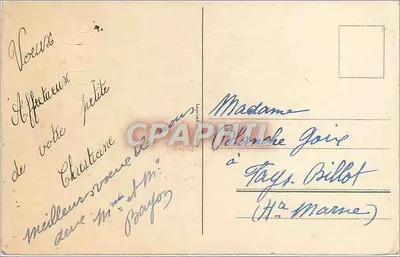 Voeux
Affectueux
de votre petite
Christiane
meilleurs voeux de nous
deux Mme et Mr
Bayon
CPARAMA
Madame
Blanche Goix
à
Fays-Billot
(Hte Marne)